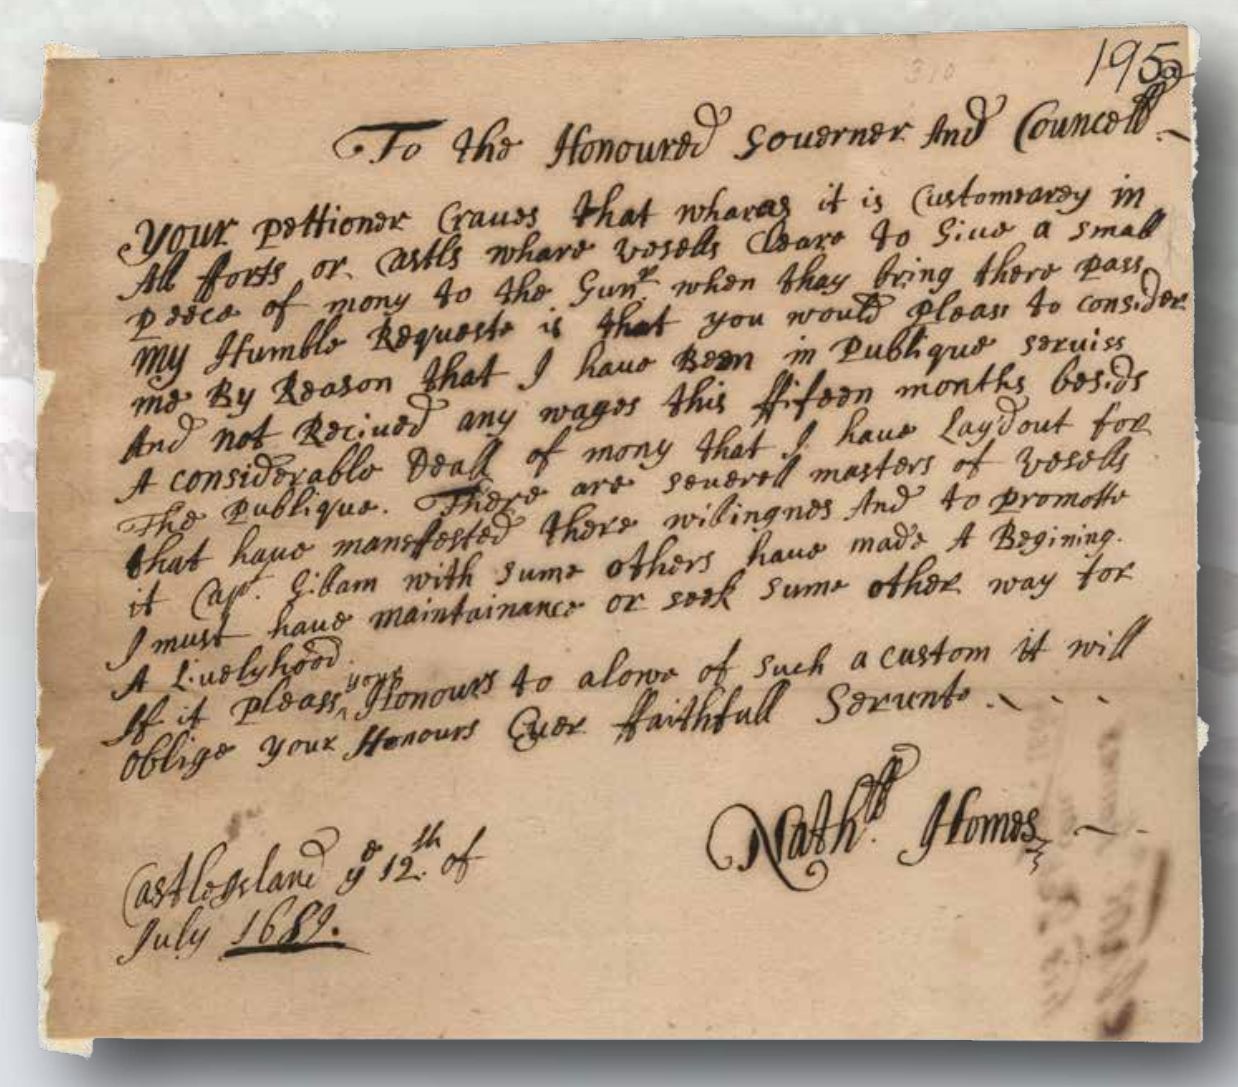 310
195a
To the Honoured Governer And Councell
Your pettioner Craves that wharas it is Customearey in
All fforts or Castls whare vesells Cleare to Give a small
peece of mony to the Gunr when thay bring there pass
my Humble Requeste is that you would pleass to consider
me By Reason that I have Been in Publique serviss
And not Recived any wages this ffifeen months besids
A considerable Deall of mony that I have Laydout for
The Publique. There are severell masters of vesells
that have manefested there wilingnes And to promotte
it Capt. Gibam with sume others have made A Begining.
I must have maintainance or seek sume other way for
A Livelyhood.
If it pleass your Honours to alowe of such a custom it will
oblige your Honours Ever ffaithfull Servente
Nathll. Homes
Castlegsland ye 12th of
July 1689.